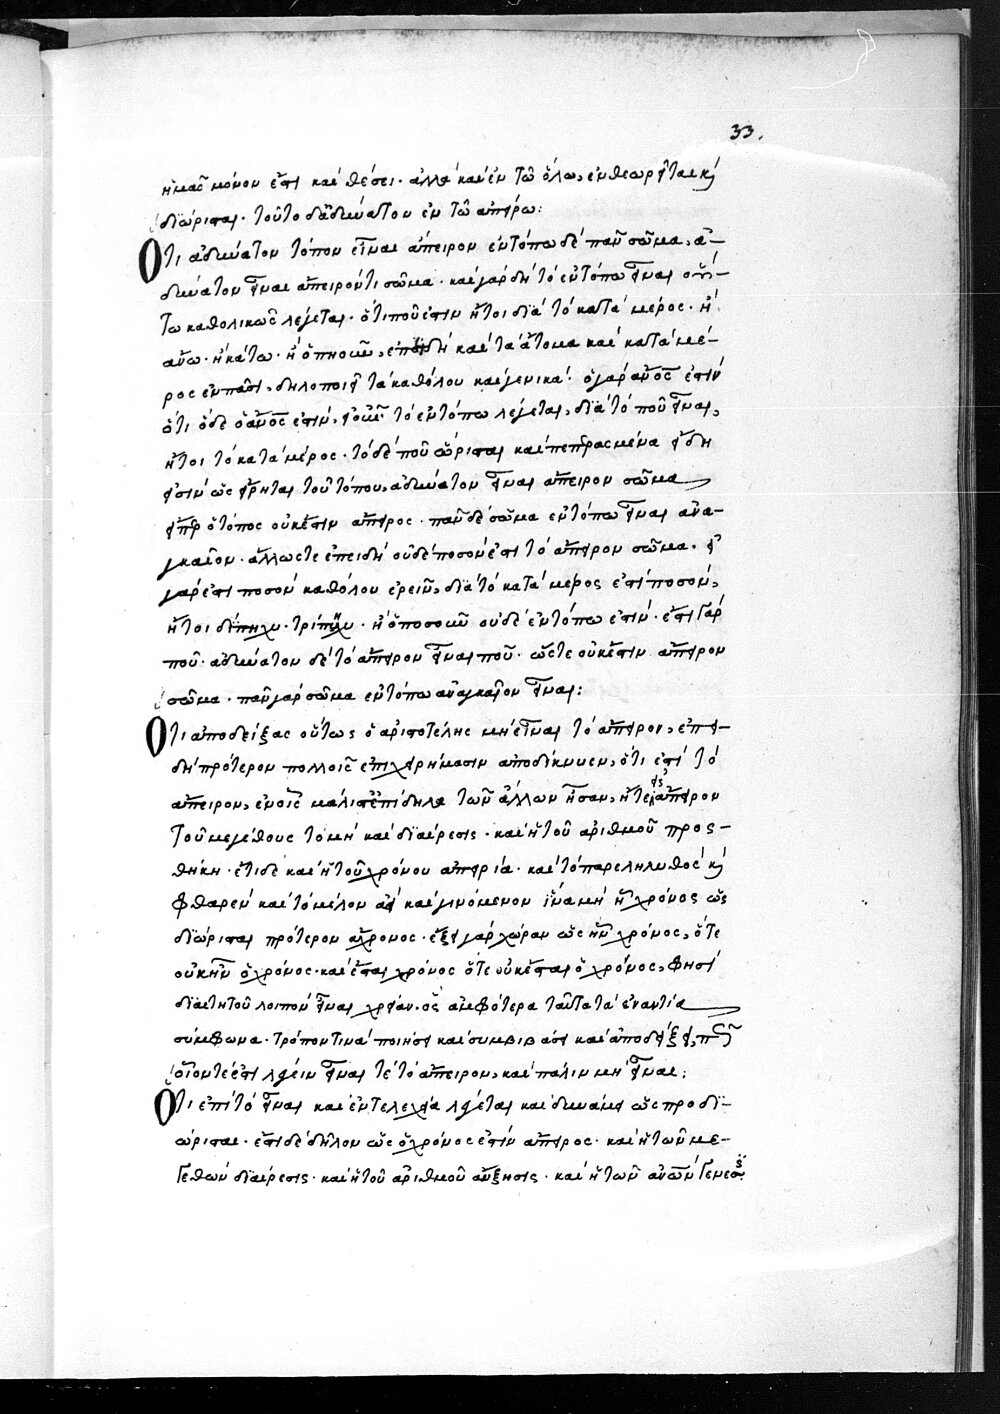 33.
ἡμᾶς μόνον ἐστὶ καὶ θέσει· ἀλλὰ καὶ ἐν τῶ ὅλω, ἐνθεωρεῖται κὶ
διώρισται. τοῦτο δ' ἀδύνατον ἐν τῶ ἀπείρω:
Ὅτι ἀδύνατον τόπον εἶναι ἄπειρον ἐν τόπω δὲ πᾶν σῶμα, ἀ-
δύνατον εἶναι ἄπειρόν τι σῶμα· καὶ γὰρ δὴ τὸ ἐν τόπω εἶναι οὕ-
τω καθολικῶς λέγεται. ὅτι ποῦ ἐστιν ἤτοι διὰ τὸ κατὰ μέρος· ἢ
ἄνω· ἢ κάτω· ἢ ὁπηοῦν, ἐπειδὴ καὶ τὰ ἄτομα καὶ κατὰ μέ-
ρος ἐν πᾶσι, δηλοποιεῖ τὰ καθόλου καὶ γενικά· ὁ γὰρ ἄνος ἐστὶν
ὅτι ὅδε ὁ ἄνος ἐστίν, τὸ ἐν τόπω λέγεται, διὰ τὸ ποῦ εἶναι,
ἤτοι τὸ κατὰ μέρος· τὸ δὲ ποῦ ὥρισται καὶ πεπερασμένα εἴδη
εἰσὶν ὡς εἴρηται τοῦ τόπου, ἀδύνατον εἶναι ἄπειρον σῶμα
εἴπερ ὁ τόπος οὐκ ἔστιν ἄπειρος· πᾶν δὲ σῶμα ἐν τόπω εἶναι ἀνα-
γκαῖον· ἄλλωστε ἐπειδὴ οὐδὲ ποσόν ἐστι τὸ ἄπειρον σῶμα· εἰ
γάρ ἐστι ποσὸν καθόλου ἐρεῖν, διὰ τὸ κατὰ μέρος ἐστὶ ποσόν,
ἤτοι δίπηχυ· τρίπηχυ· ἢ ὁποσοῦν οὐδὲ ἐν τόπω ἐστίν· ἔστι γάρ
ποῦ· ἀδύνατον δὲ τὸ ἄπειρον εἶναι ποῦ· ὥστε οὐκ ἔστιν ἄπειρον
σῶμα· πᾶν γὰρ σῶμα ἐν τόπω ἀναγκαῖον εἶναι:
Ὅτι ἀποδείξας οὕτως ὁ ἀριστοτέλης μὴ εἶναι τὸ ἄπειρον, ἐπει-
δὴ πρότερον πολλοῖς ἐπιχειρήμασιν ἀποδίκνυεν, ὅτι ἐστὶ τὸ
ἄπειρον, ἐν οἷς μάλιστ' ἐπίδηλα τῶν ἄλλων ἦσαν, ἥτε εἰς ἄπειρον
τοῦ μεγέθους τομὴ καὶ διαίρεσις· καὶ ἡ τοῦ ἀριθμοῦ προς-
θήκη· ἔτι δὲ καὶ ἡ τοῦ χρόνου ἀπειρία· καὶ τὸ παρεληλυθὸς κὶ
φθαρὲν καὶ τὸ μέλον ἀεὶ καὶ γινόμενον ἵνα μὴ ἦ χρόνος ὡς
διώρισται πρότερον ἄχρονος· ἕξει γὰρ χώραν ὡς ἦν χρόνος, ὅτε
οὐκ ἦν ὁ χρόνος· καὶ ἔσται χρόνος ὅτε οὐκ ἔσται ὁ χρόνος, φησὶ
διαιτητοῦ λοιπὸν εἶναι χρείαν· ὃς ἀμφότερα ταῦτα τὰ ἐναντία
σύμφωνα· τρόπον τινὰ ποιήσει καὶ συμβιβάσει καὶ ἀποδείξει, πῶς
οἷόν τέ ἐστι λέγειν εἶναί τε τὸ ἄπειρον, καὶ πάλιν μὴ εἶναι:
Ὅτι ἐπὶ τὸ εἶναι καὶ ἐντελεχεία λέγεται καὶ δυνάμει ὡς προδι-
ώρισται· ἔστι δὲ δῆλον ὡς ὁ χρόνος ἐστὶν ἄπειρος· καὶ ἡ τῶν με-
γεθῶν διαίρεσις· καὶ ἡ τοῦ ἀριθμοῦ αὔξησις· καὶ ἡ τῶν ἀνων γένεσις